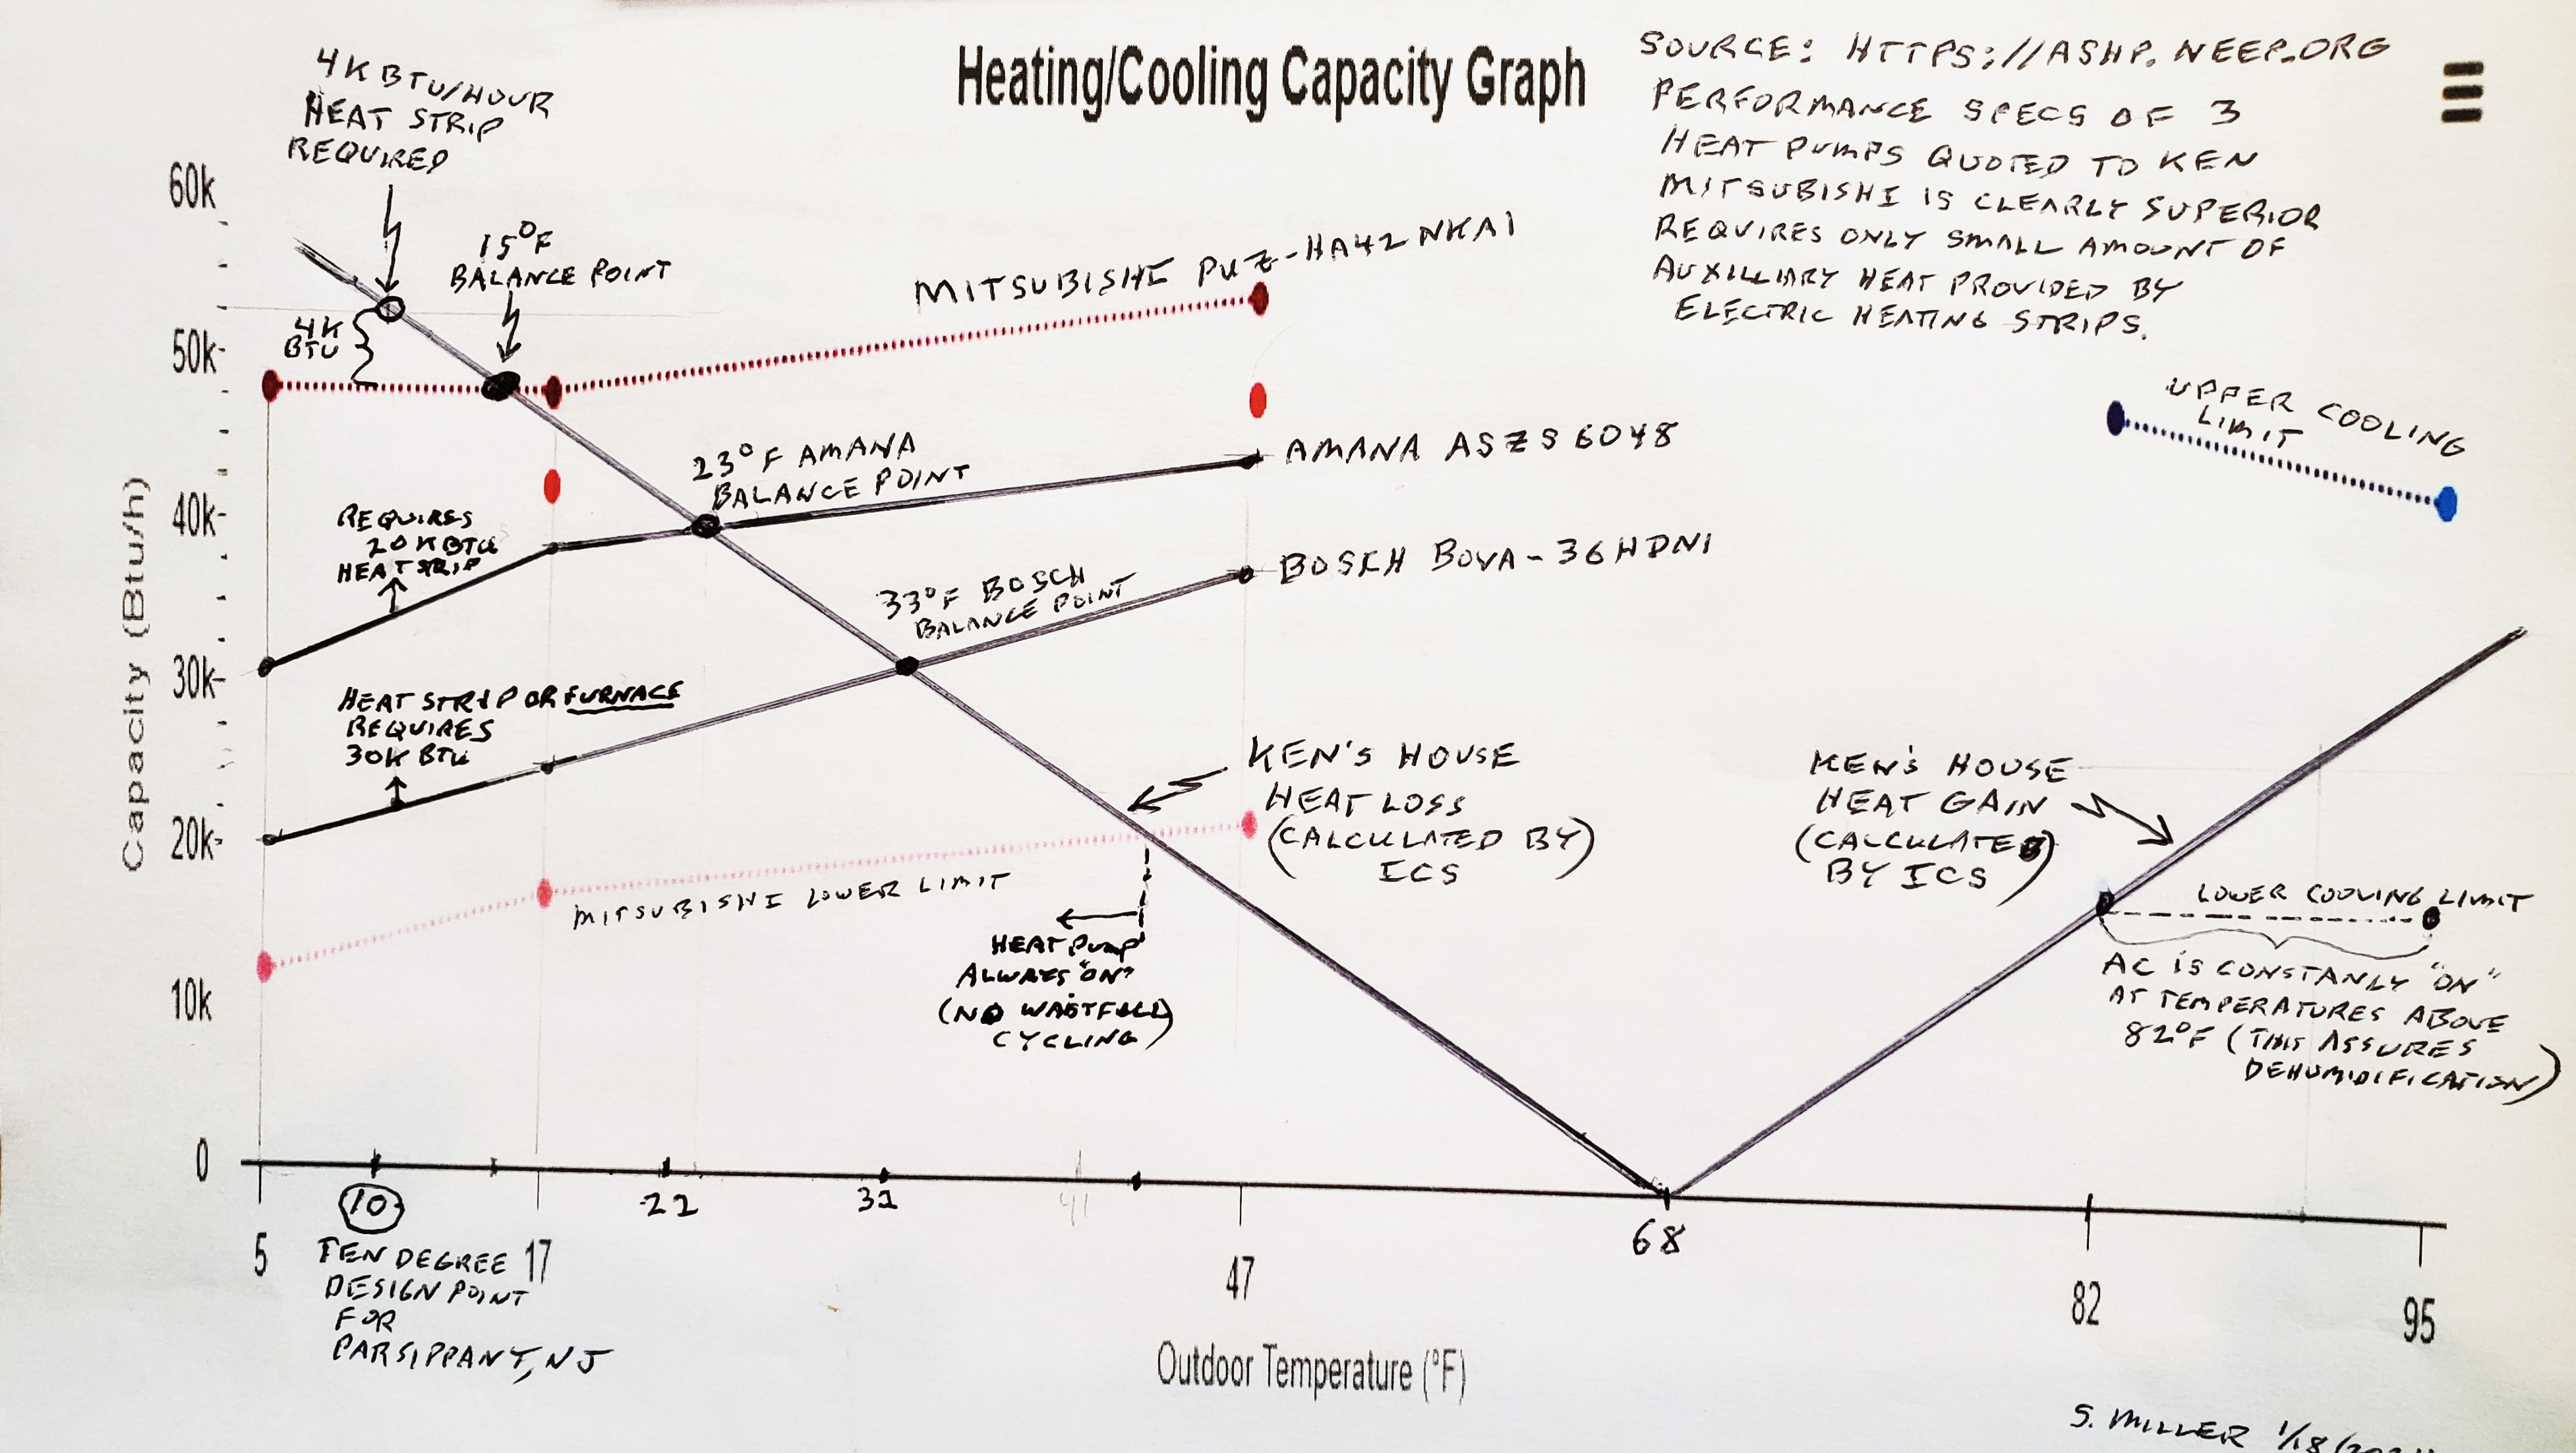 Heating/Cooling Capacity Graph
SOURCE: HTTPS://ASHP.NEEP.ORG
PERFORMANCE SPECS OF 3
HEAT PUMPS QUOTED TO KEN
MITSUBISHI IS CLEARLY SUPERIOR
REQUIRES ONLY SMALL AMOUNT OF
AUXILLIARY HEAT PROVIDED BY
ELECTRIC HEATING STRIPS.
4K BTU/HOUR
HEAT STRIP
REQUIRED
15°F
BALANCE POINT
MITSUBISHI PUZ-HA42NKA1
4K
BTU
UPPER COOLING
LIMIT
23°F AMANA
BALANCE POINT
AMANA ASZS6048
REQUIRES
20K BTU
HEAT STRIP
33°F BOSCH
BALANCE POINT
BOSCH BOVA-36HDN1
HEAT STRIP OR FURNACE
REQUIRES
30K BTU
KEN'S HOUSE
HEAT LOSS
(CALCULATED BY)
ICS
KEN'S HOUSE
HEAT GAIN
(CALCULATED)
BY ICS
MITSUBISHI LOWER LIMIT
HEAT PUMP
ALWAYS "ON"
(NO WASTFULL)
CYCLING
LOWER COOLING LIMIT
AC IS CONSTANLY "ON"
AT TEMPERATURES ABOVE
82°F (THIS ASSURES
DEHUMIDIFICATION)
Capacity (Btu/h)
60k
50k
40k
30k
20k
10k
0
10
22
32
41
68
5
17
47
82
95
TEN DEGREE
DESIGN POINT
FOR
PARSIPPANY, NJ
Outdoor Temperature (°F)
S. MILLER 1/18/